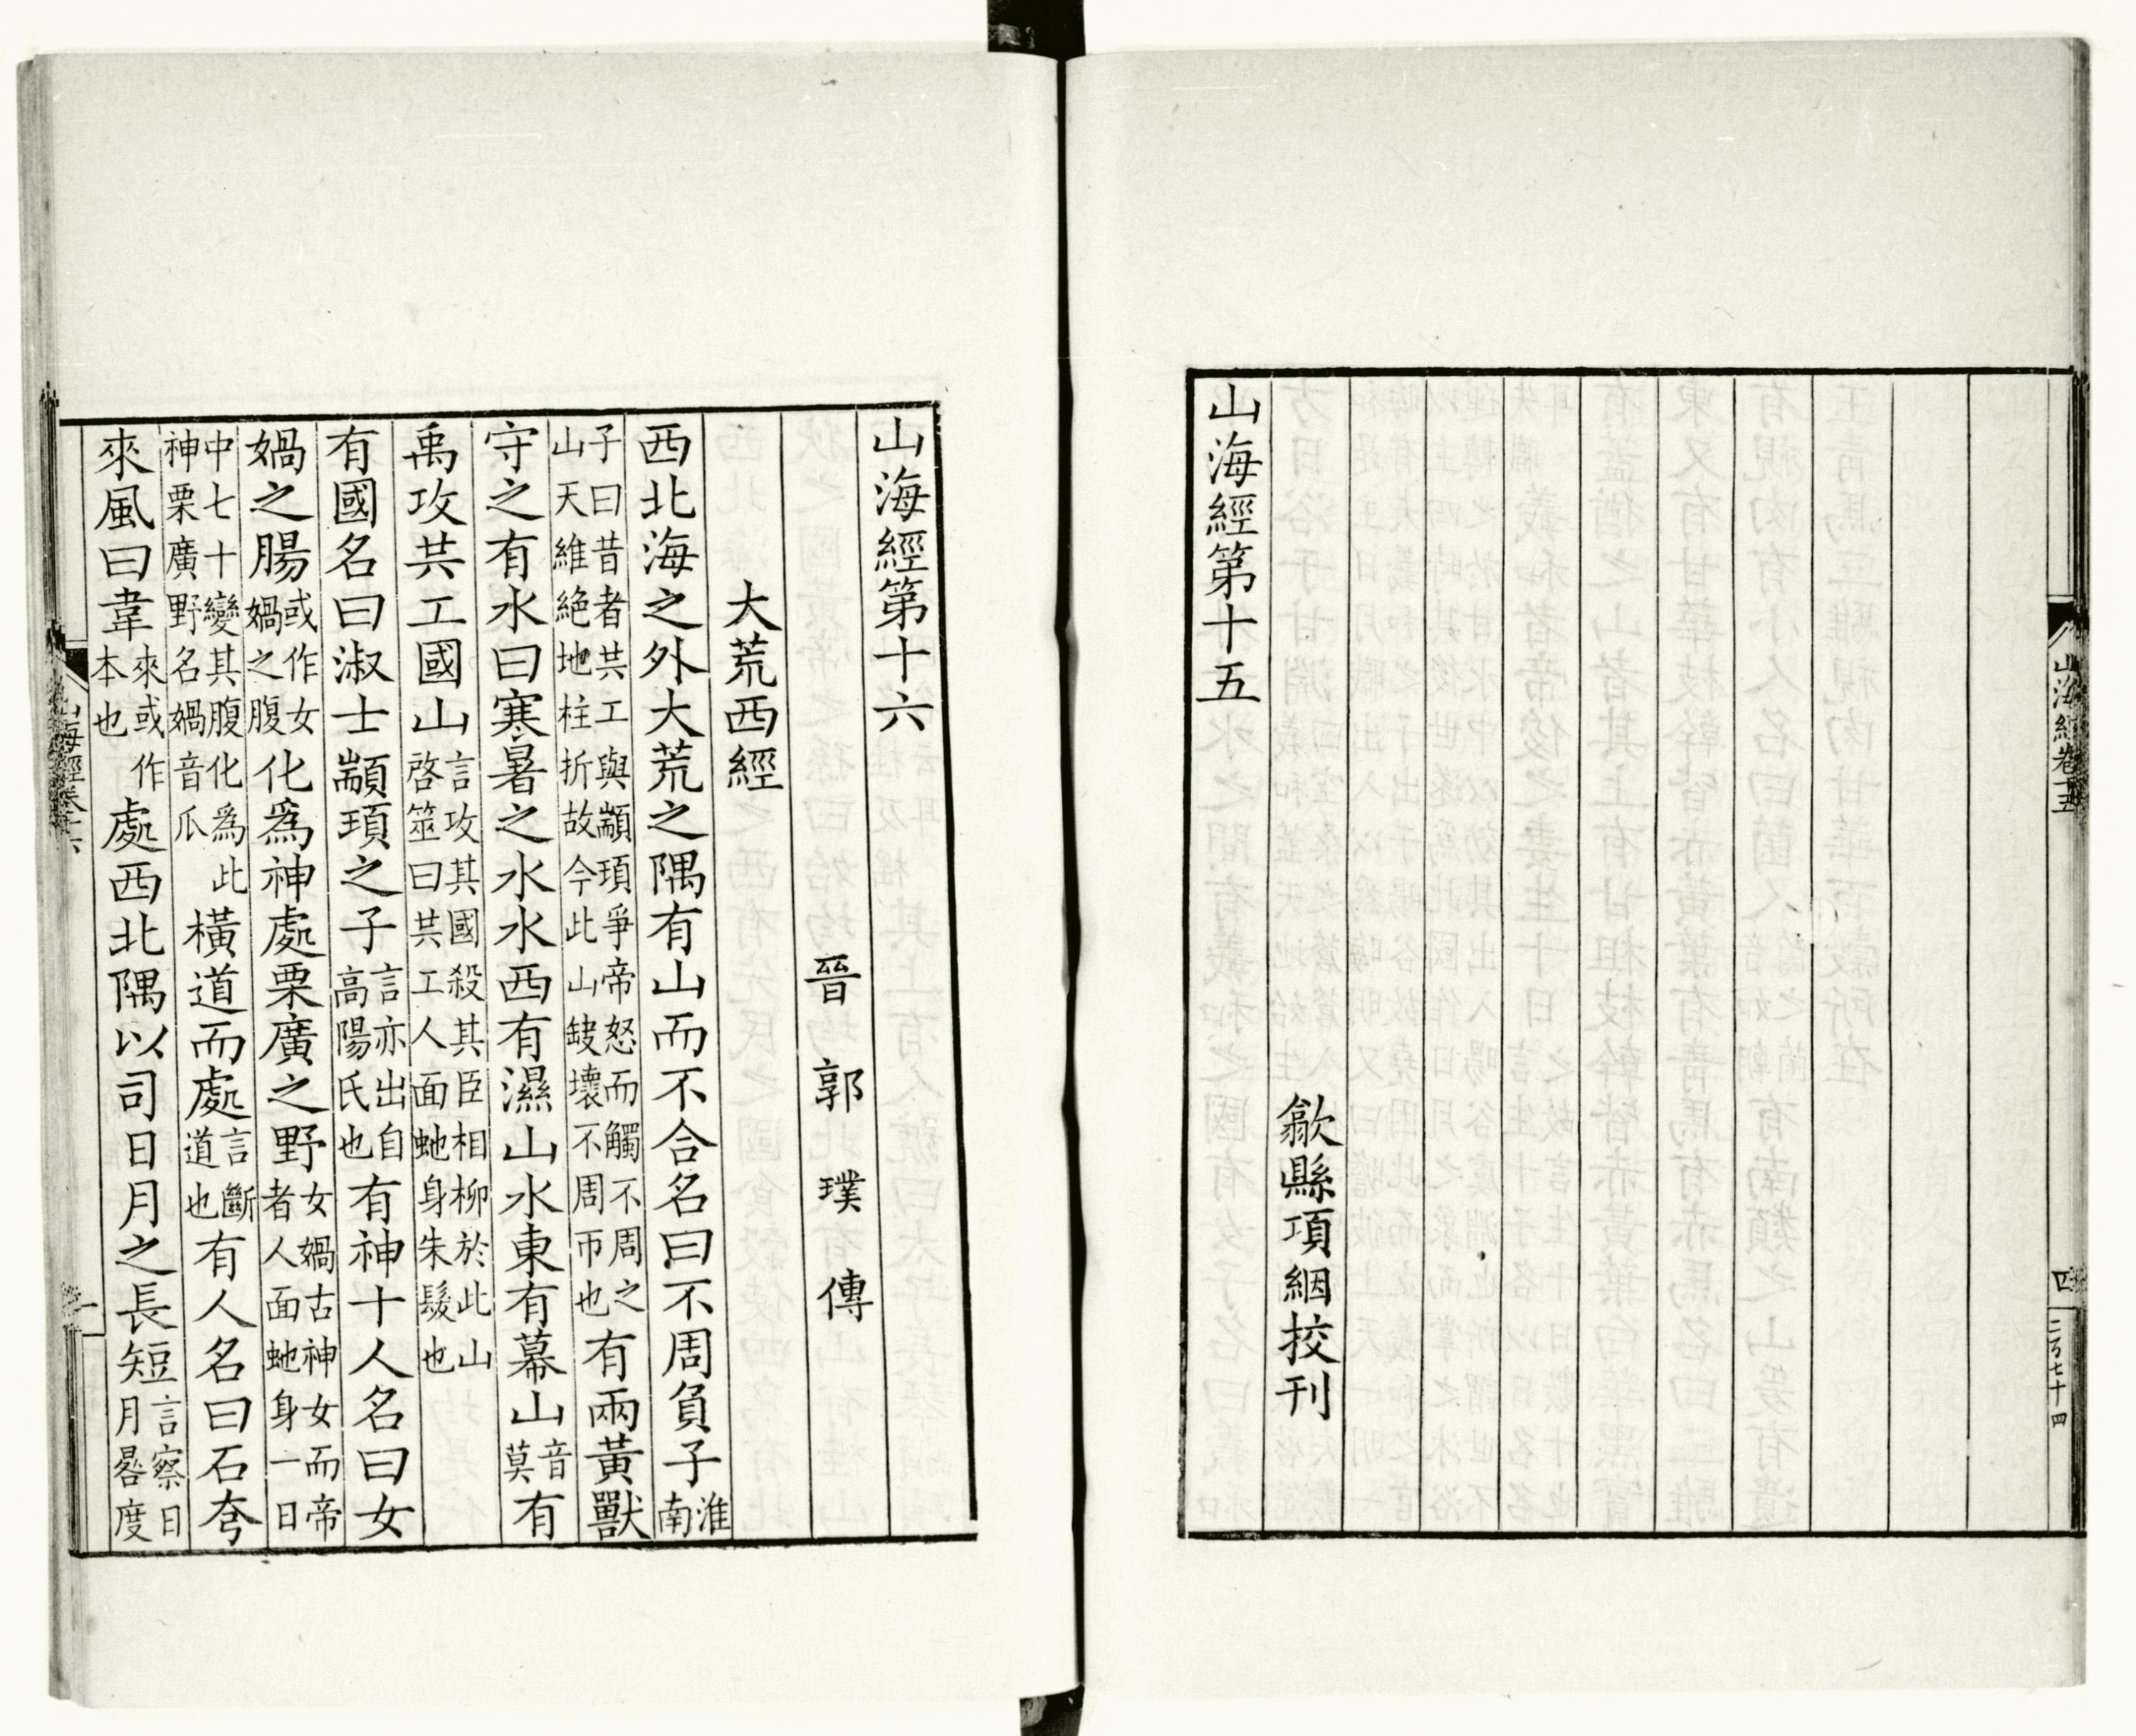 山海經卷十五 四
歙縣項絪挍刊
山海經第十五
山海經第十六
晉 郭 璞 傳
大荒西經
西北海之外大荒之隅有山而不合名曰不周負子淮南
子曰昔者共工與顓頊爭帝怒而觸不周之山天維絶地柱折故今此山缺壞不周帀也有兩黃獸
守之有水曰寒暑之水水西有濕山水東有幕山音莫有
禹攻共工國山言攻其國殺其臣相柳於此山啓筮曰共工人面虵身朱髮也
有國名曰淑士顓頊之子言亦出自高陽氏也有神十人名曰女
媧之腸或作女媧之腹化爲神處栗廣之野女媧古神女而帝者人面虵身一日
中七十變其腹化爲此神栗廣野名媧音瓜橫道而處言斷道也有人名曰石夸
來風曰韋來或作本也處西北隅以司日月之長短言察日月晷度
山海經卷十六 一